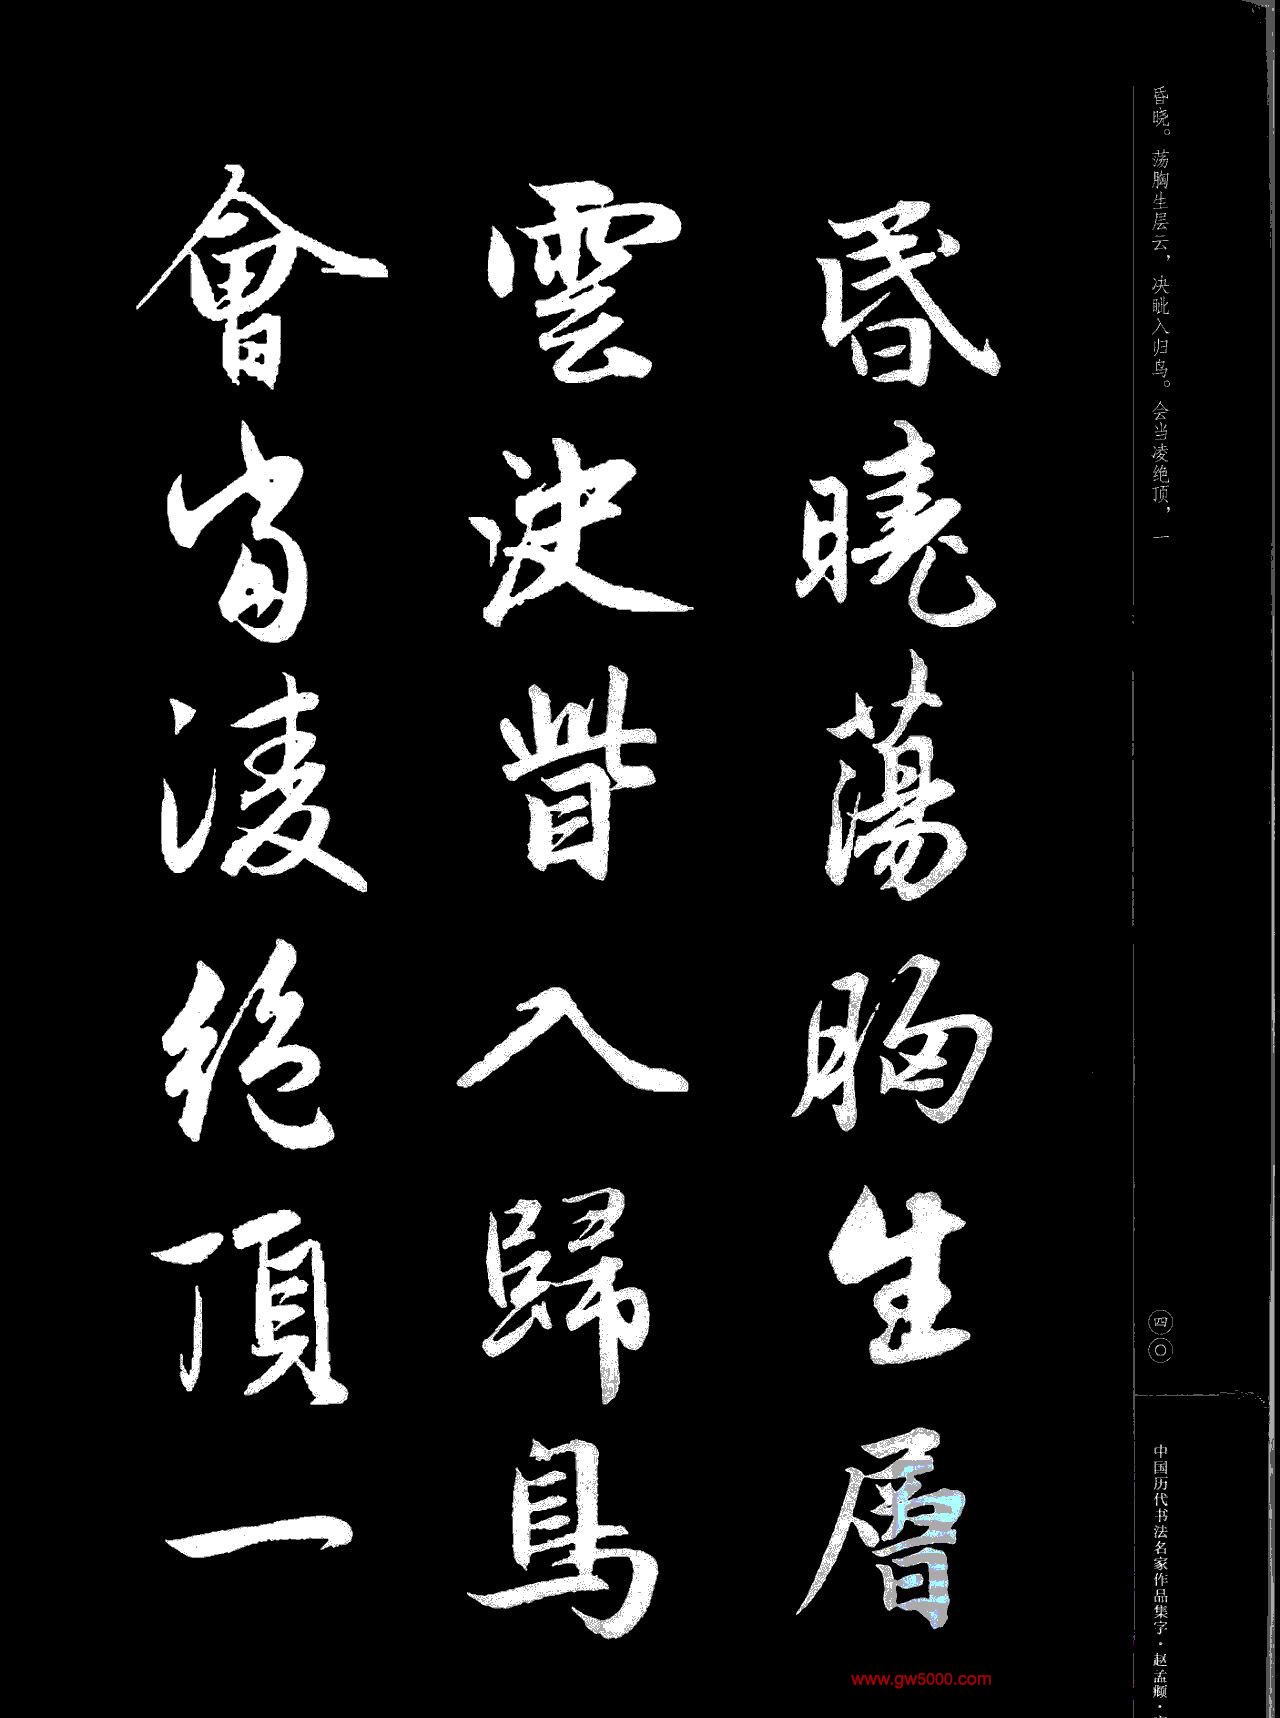 昏晓。荡胸生层云，决眦入归鸟。会当凌绝顶，一
昏曉蕩胸生層
雲決眥入歸鳥
會當凌絕頂一
四〇
中国历代书法名家作品集字·赵孟頫·
www.gw5000.com